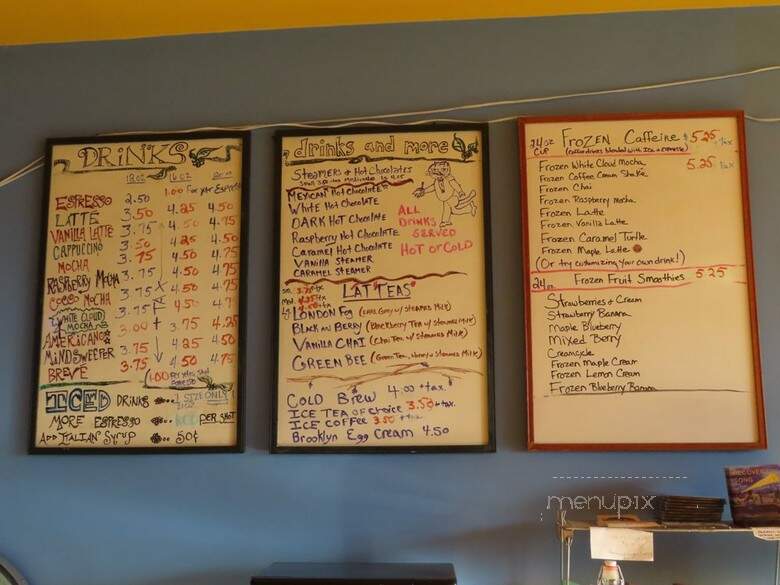 DRINKS
12oz 16oz 20oz
1.00 For xtra Espresso
ESPRESSO 2.50
LATTE 3.50 4.25 4.50
VANILLA LATTE 3.75 4.50 4.75
CAPPUCCINO 3.50 4.25 4.50
MOCHA 3.75 4.50 4.75
RASPBERRY MOCHA 3.75 4.50 4.75
COCCO MOCHA 3.75 4.50 4.75
WHITE CLOUD MOCHA 3.75 4.50 4.75
AMERICANO 3.00 3.75 4.25
MINDSWEEPER 3.75 4.25 4.50
BREVE 3.75 4.50 4.75
1.00 Per xtra Shot Espresso
ICED DRINKS 1 SIZE ONLY
MORE ESPRESSO PER SHOT
Add ITALIAN Syrup 50¢
drinks and more
STEAMERS & Hot Chocolates
MEXICAN Hot Chocolate
White Hot Chocolate
DARK Hot Chocolate
Raspberry Hot Chocolate
Caramel Hot Chocolate
VANILLA STEAMER
CARAMEL STEAMER
ALL DRINKS SERVED HOT or COLD
LAT"TEAS"
LONDON Fog (Earl Grey w/ Steamed Milk)
BLACK and BERRY (Blackberry Tea w/ Steamed Milk)
VANILLA CHAI (Chai Tea w/ Steamed Milk)
GREEN BEE (Green Tea, Honey & Steamed Milk)
COLD BREW 4.00 +tax
ICE TEA of choice 3.50 +tax
ICE COFFEE 3.50 +tax
Brooklyn Egg Cream 4.50
24oz CUP FROZEN Caffeine $5.25 tax
(Coffee drinks blended with Ice & Espresso)
Frozen White Cloud Mocha 5.25 tax
Frozen Coffee Cream Shake
Frozen Chai
Frozen Raspberry Mocha
Frozen Latte
Frozen Vanilla Latte
Frozen Caramel Turtle
Frozen Maple Latte
(Or try customizing your own drink!)
24oz Frozen Fruit Smoothies 5.25
Strawberries & Cream
Strawberry Banana
Maple Blueberry
Mixed Berry
Creamcycle
Frozen Maple Cream
Frozen Lemon Cream
Frozen Blueberry Banana
menupix